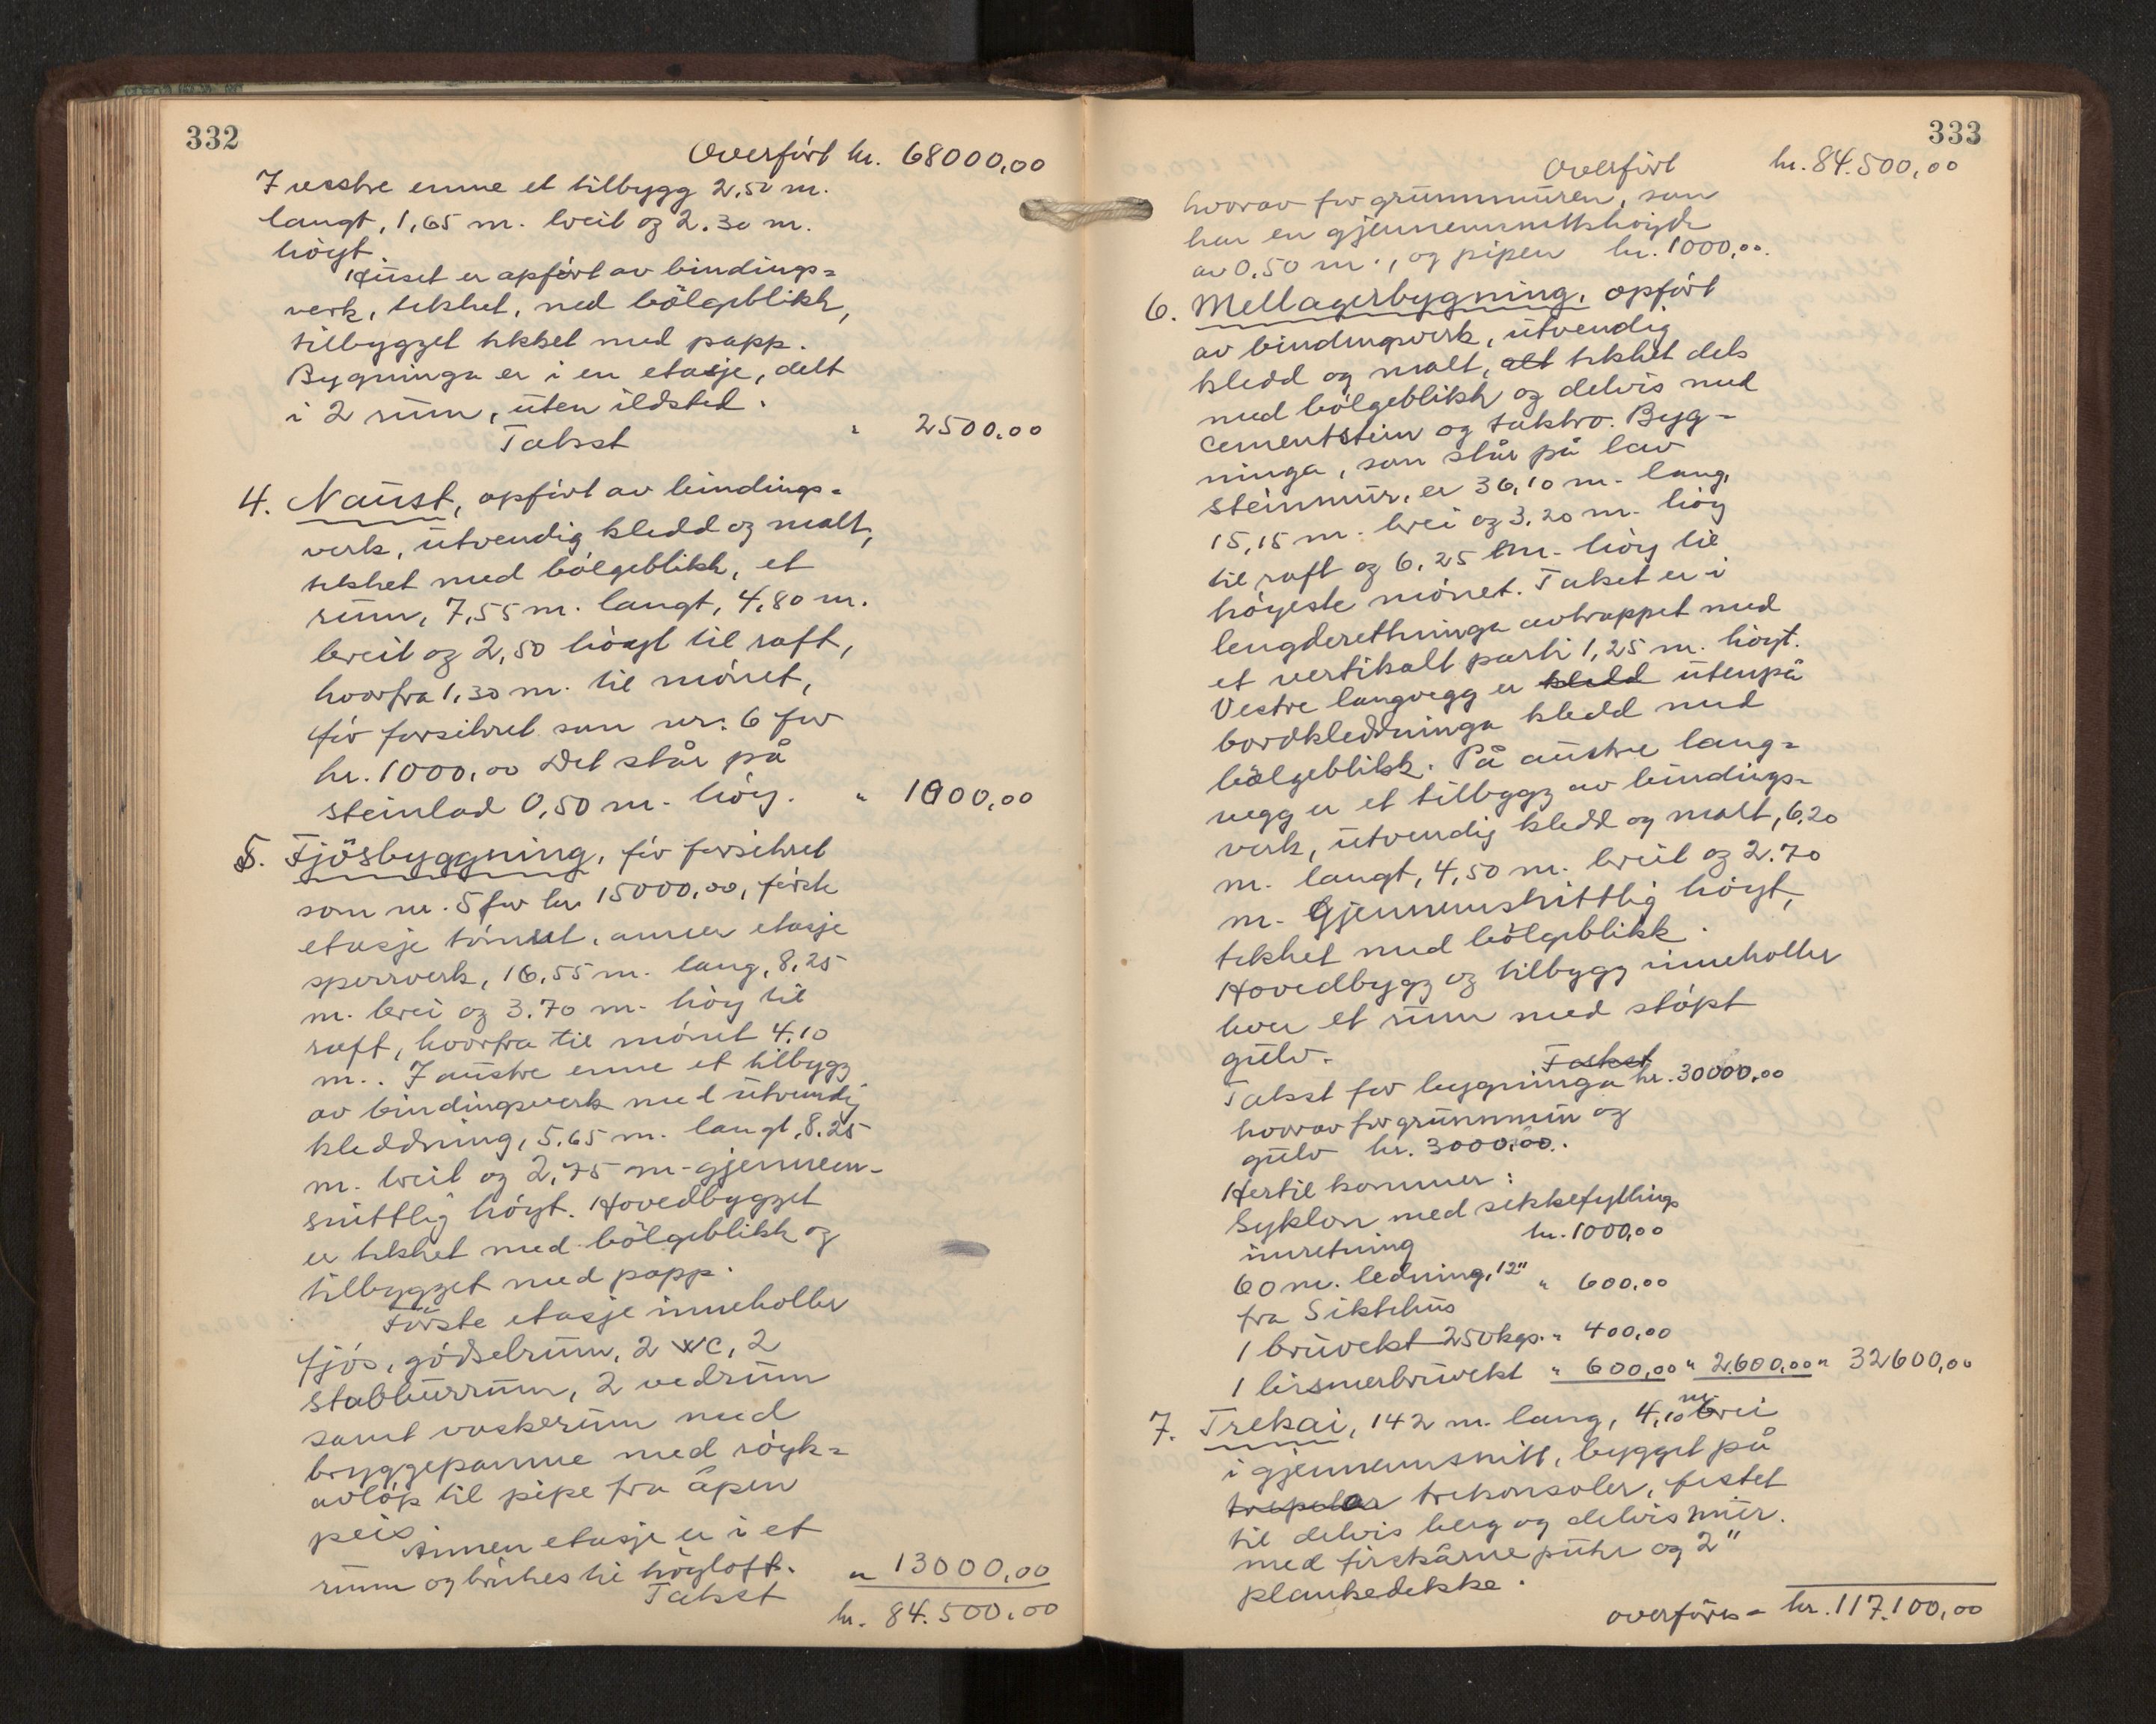 332
Overført kr. 68000,00
I vestre enne et tilbygg 2,50 m.
langt, 1,65 m. breit og 2.30 m.
höyt.
Huset er opfört av bindings=
verk, tekket, med bölgeblikk,
tilbygget tekket med papp.
Bygninga er i en etasje, delt
i 2 rum, uten ildsted.
Takst " 2500,00
4. Naust, opfört av bindings-
verk, utvendig kledd og malt,
tekket med bölgeblikk, et
rum, 7,55 m. langt, 4,80 m.
breit og 2,50 höygt til raft,
hvorfra 1,30 m. til mönet,
för forsikret som nr. 6 for
kr. 1000,00 Det står på
steinlad 0,50 m. höy. " 1000,00
5. Fjösbyggning, för forsikret
som nr. 5 for kr. 15000,00, förste
etasje tömret, annen etasje
sperrverk, 16,55 m. lang, 8,25
m. brei og 3.70 m. höy til
raft, hvorfra til mönet 4,10
m.. I austre enne et tilbygg
av bindingsverk med utvendig
kleddning, 5,65 m. langt, 8,25
m. breit og 2,75 m. gjennem-
snittlig höyt. Hovedbygget
er tekket med bölgeblikk og
tilbygget med papp.
Förste etasje inneholler
fjös, gödselrum, 2 WC, 2
stabburrum, 2 vedrum
samt vaskerum med
bryggepanne med röyk=
avlöp til pipe fra åpen
peis
Annen etasje er i et
rum og brukes til höyloft.
Takst " 13000,00
kr. 84.500,00
333
Overfört kr. 84.500,00
hvorav for grunnmuren, som
har en gjennemsnittshöyde
av 0,50 m., og pipen kr. 1000,00.
6. Mellagerbygning, opfört
av bindingsverk, utvendig
kledd og malt, alt tekket dels
med bölgeblikk og delvis med
cementstein og taktro. Byg-
ninga, som står på lav
steinmur, er 36,10 m. lang,
15,15 m. brei og 3,20 m. höy
til raft og 6,25 m. höy til
höyeste mönet. Taket er i
lengderettninga avtrappet med
et vertikalt parti 1,25 m. höyt.
Vestre langvegg er kledd utenpå
bordkleddninga kledd med
bölgeblikk. På austre lang=
vegg er et tilbygg av bindings=
verk, utvendig kledd og malt, 6,20
m. langt, 4,50 m. breit og 2.70
m. Gjennemsnittlig höyt,
tekket med bölgeblikk.
Hovedbygg og tilbygg inneholler
hver et rum med stöpt
gulv.
Takst
Takst for bygninga kr. 30000,00
hvorav for grunnmur og
gulv kr. 3000,00.
Hertil kommer:
Syklon med sekkefyllings
innretning kr. 1000,00
60 m. ledning, 12" " 600,00
fra Siktehus
1 bruvekt 250 kgs. " 400,00
1 bismerbruvekt " 600,00 " 2.600,00 " 32600,00
7. Trekai, 142 m. lang, 4,10 m brei
i gjennemsnitt, bygget på
trepeler trekonsoler, festet
til delvis berg og delvis mur.
med firskårne putur og 2"
plankedekke.
overföres = kr. 117.100,00